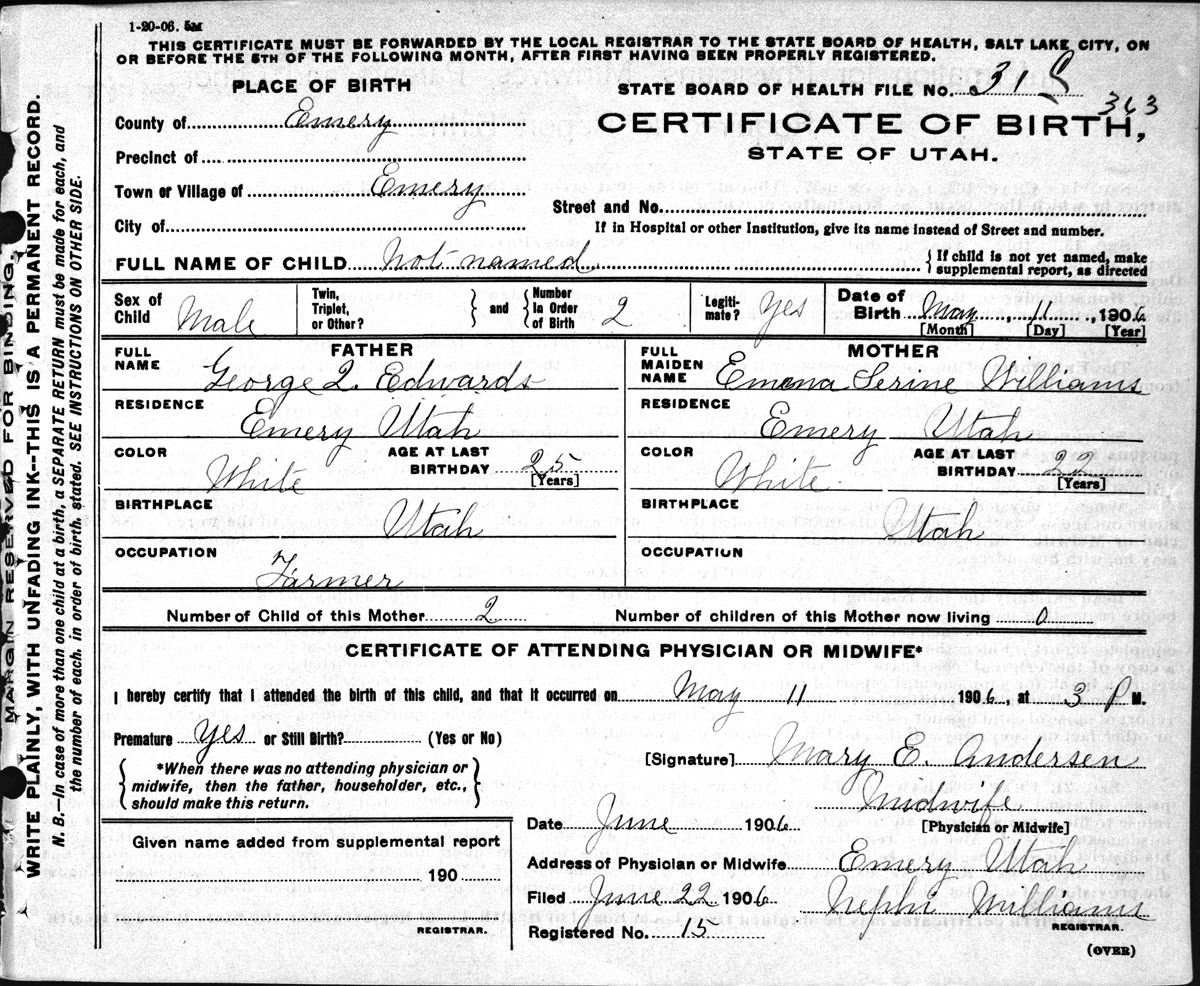 1-20-06. 5M
THIS CERTIFICATE MUST BE FORWARDED BY THE LOCAL REGISTRAR TO THE STATE BOARD OF HEALTH, SALT LAKE CITY, ON
OR BEFORE THE 5TH OF THE FOLLOWING MONTH, AFTER FIRST HAVING BEEN PROPERLY REGISTERED.
PLACE OF BIRTH
STATE BOARD OF HEALTH FILE No. 31
363
County of Emery
CERTIFICATE OF BIRTH,
STATE OF UTAH.
Precinct of
Town or Village of Emery
Street and No.
City of
If in Hospital or other Institution, give its name instead of Street and number.
FULL NAME OF CHILD Not named
{If child is not yet named, make
supplemental report, as directed
Sex of Child Male
Twin, Triplet, or Other?
} and {
Number In Order of Birth 2
Legiti-mate? Yes
Date of Birth May 11, 1906
[Month] [Day] [Year]
FATHER
FULL NAME George L. Edwards
MOTHER
FULL MAIDEN NAME Emma Serine Williams
RESIDENCE Emery Utah
RESIDENCE Emery Utah
COLOR White AGE AT LAST BIRTHDAY 25 [Years]
COLOR White AGE AT LAST BIRTHDAY 22 [Years]
BIRTHPLACE Utah
BIRTHPLACE Utah
OCCUPATION Farmer
OCCUPATION
Number of Child of this Mother 2 Number of children of this Mother now living 0
CERTIFICATE OF ATTENDING PHYSICIAN OR MIDWIFE*
I hereby certify that I attended the birth of this child, and that it occurred on May 11 1906, at 3 P M.
Premature Yes or Still Birth? (Yes or No)
*When there was no attending physician or
midwife, then the father, householder, etc.,
should make this return.
[Signature] Mary E. Andersen
Midwife
[Physician or Midwife]
Date June 1906
Given name added from supplemental report
190
REGISTRAR.
Address of Physician or Midwife Emery Utah
Filed June 22 1906 Nephi Williams
REGISTRAR.
Registered No. 15
(OVER)
MARGIN RESERVED FOR BINDING.
WRITE PLAINLY, WITH UNFADING INK--THIS IS A PERMANENT RECORD.
N. B.—In case of more than one child at a birth, a SEPARATE RETURN must be made for each, and
the number of each, in order of birth, stated. SEE INSTRUCTIONS ON OTHER SIDE.